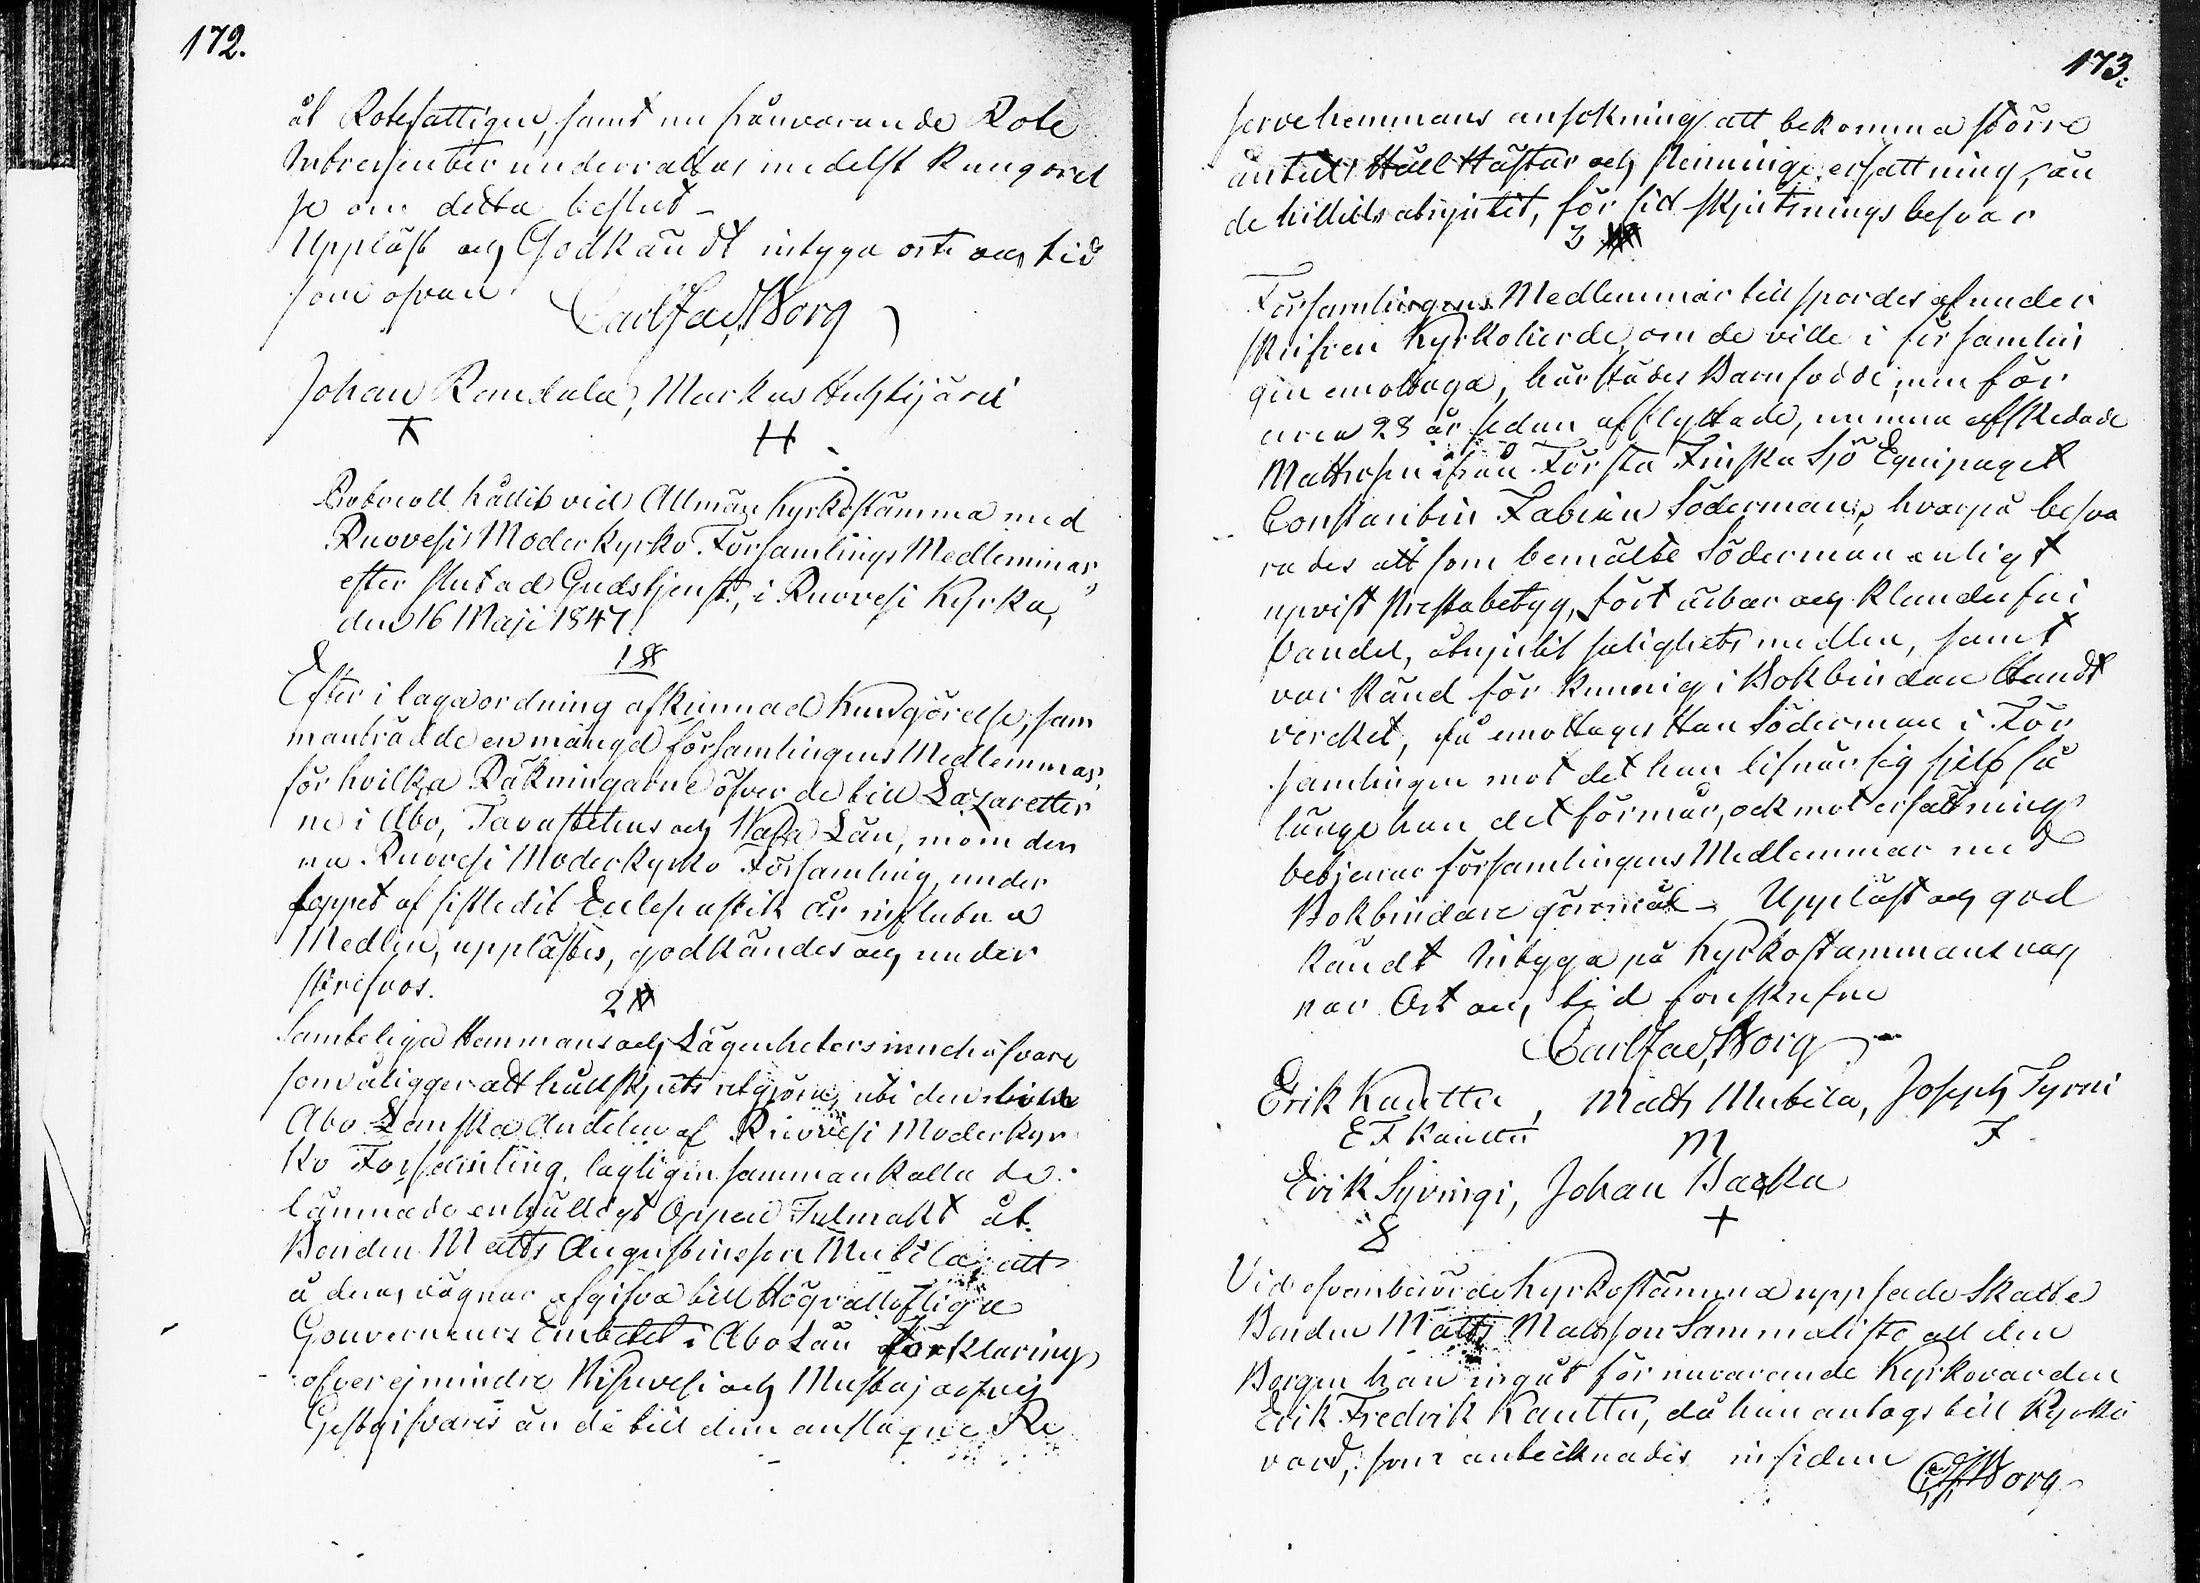 172.
åt Rotefattigen, samt nu frånvarande Rote
Intressenter underrättas medelst kungörel
se om detta beslut –
Uppläst och Godkändt intyga ort och tid
som ofvan
Carl Jac. Worg
Johan Randala, Markus Huhtijärvi
H
Protocoll hållit vid Allmän Kyrkostämma med
Ruovesi Moderkyrko Församlings Medlemmar,
efter slutad Gudstjenst, i Ruovesi Kyrka,
den 16 Maji 1847.
1 §
Efter i laga ordning afkunnad Kungörelse, sam
manträdde en mängd församlingens Medlemmar,
för hvilka Räkningarne öfver de till Lazaretter
ne i Åbo, Tavastehus och Wasa Län, inom den
na Ruovesi Moderkyrko Församling, under
loppet af sistledit Ecclesiastik år influtna
Medlen, upplästes, godkändes och under
skrefvos.
2 §
Samtelige Hemmans och Lägenheters innehafvare
som åligger att hållskjuts utgöra, uti den till
Åbo Länska Andelen af Ruovesi Moderkyr
ko Församling, lagligen sammankallade
lämnade enhälligt Öppen Fulmakt åt
Bonden Matts Augustinsson Mutila, att
å deras vägnar afgifva till Högvällofliga
Gouverneurs Embetet i Åbo Län förklaring
öfver ej mindre Wisuvesi och Mustajärvi
Gestgifvares än de till dem anslagne Re
173.
servehemmans ansökning att bekomma större
antal Håll Hästar och penninge ersättning, än
de hittills åtnjutit, för sid skjutsnings besvär
3 §
Församlingens Medlemmar tillspordes af under
skrifven Kyrkoherde, om de ville i församlin
gen emottaga, härstädes Barnfödde, men för
circa 28 år sedan afflyttade, numera afskedade
Mattrosen ifrån Första Finska Sjö Equipaget
Constantin Fabian Söderman, hvarpå besva
rades att som bemälte Söderman enligt
upvist Prestabetyg, fört ärbar och klanderfri
vandel, åtnjutit salighets medlen, samt
var känd för kunnig i Bokbindare Handt
vercket, så emottages Han Söderman i För
samlingen mot det han lifnär sig sjelf så
länge han det förmår, och mot ersättning
betjenar församlingens Medlemmar med
Bokbindare göromål – Uppläst och god
kändt intyga på Kyrkostämmans väg
nar Ort och tid förskrifne
Carl Jac. Worg
Erik Kauttu, Matts Mutila, Joseph Tyrni
E F Kauttu M
Erik Syvingi, Johan Backa
+
Vid ofvanberörde Kyrkostämma uppsade Skatte
Bonden Matts Mattsson Sammalisto all den
Borgen han ingåt för nuvarande Kyrkovärden
Erik Fredrik Kauttu, då han antogs till Kyrko
värd, som antecknades in fidem
C. J. Worg